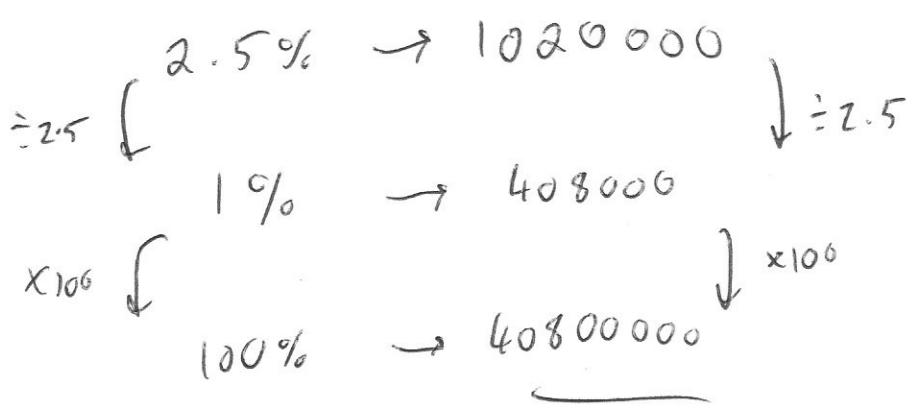 2.5% → 1020000
÷2.5 ÷2.5
1% → 408000
×100 ×100
100% → 40800000